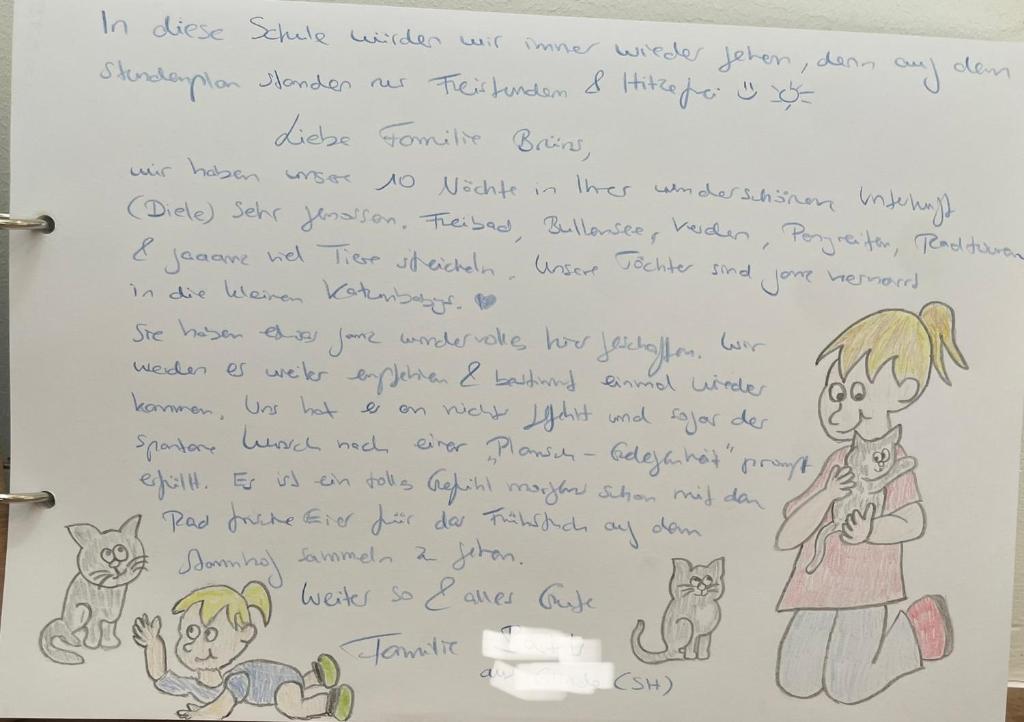 In diese Schule würden wir immer wieder gehen, denn auf dem
Stundenplan standen nur Freistunden & Hitzefrei
Liebe Familie Brüns,
wir haben unsere 10 Nächte in Ihrer wunderschönen Unterkunft
(Diele) sehr genossen. Freibad, Bullensee, Verden, Ponyreiten, Radtouren
& gaaanz viel Tiere streicheln. Unsere Töchter sind ganz vernarrt
in die kleinen Katzenbabys.
Sie haben etwas ganz wundervolles hier geschaffen. Wir
werden es weiter empfehlen & bestimmt einmal wieder
kommen. Uns hat es an nichts gefehlt und sogar der
spontane Wunsch nach einer "Plansch-Gelegenheit" prompt
erfüllt. Es ist ein tolles Gefühl morgens schon mit dem
Rad frische Eier für das Frühstück auf dem
Stammhof sammeln z gehen.
Weiter so & alles Gute
Familie
aus (SH)